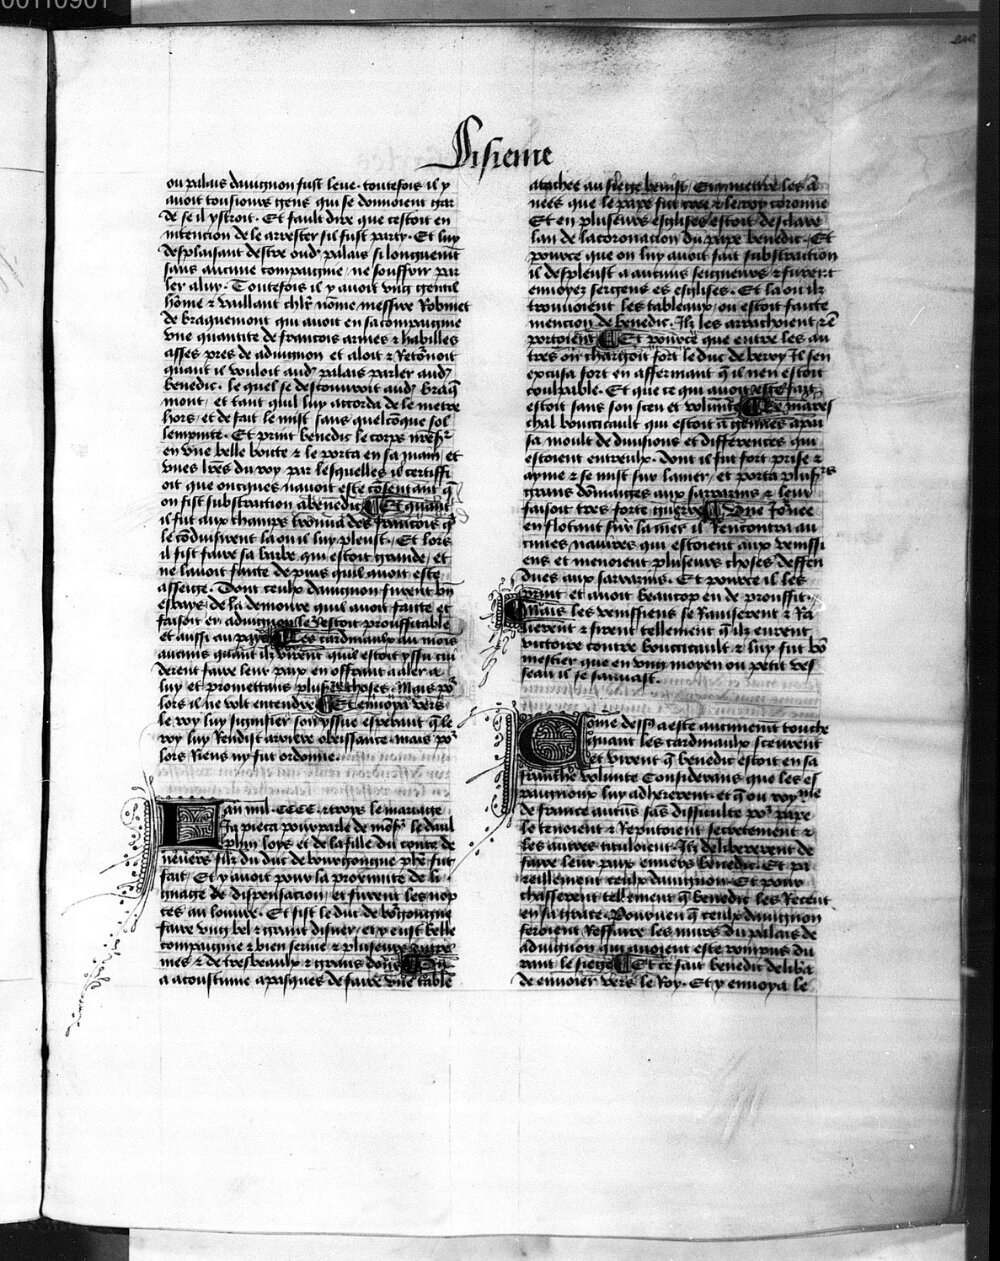 00110901
Sisieme
ou palais davignon fust leue. toutefois il y
auoit tousiours gens qui se donnoient gar
de se il ystroit. Et fault dire que cestoit en
intencion de le arrester sil fust party. Et luy
desplaisant destre oud' palais si longuement
sans aucune compaignie ne souffrir par
ler a luy. Toutefois il y auoit vng gentil
hōme & vaillant chlr nōme messire Robinet
de braquemont qui auoit en sa compaignie
vne quantite de francois armes & habilles
asses pres de aduignon et aloit & Retōnoit
quant il vouloit aud' palais parler aud'
benedic. le quel se descouuroit aud' braq̄
mont. et tant quil luy accorda de le mettre
hors. et de fait le mist sans quelcōque sol
lempnite. Et print benedic le corps nr̄e sr
en vne belle boite & le porta en sa main et
vnes lr̄es du roy par lesquelles il certiffi
oit que oncques nauoit este cōsentant q̄
on fist substraction a benedic Et quant
il fut aux champs trouua des francois q̄
le cōduisirent la ou il luy pleust. Et lors
il fist faire sa barbe qui estoit grande. et
ne lauoit faicte depuis quil auoit este
assiege. Dont ceulx dauignon furent bn̄
esbays. de la demoure quil auoit faicte et
faisoit en aduignon le' estoit prouffitable
et aussi au pays Les cardinaulx au mois
aucuns quāt ilz virent quil estoit yssu cui
derent faire leur paix en offrant a aler a
luy et promettans plus's choses. Mais po'
lors il ne volt entendre Et enuoya vers
le roy luy signifier son yssue esperant q̄ le
roy luy Rendist arriere obeissance. mais po'
lors Riens ny fut ordonne.
Lan mil cccc. & troys le mariage
Ja pieca pourparle de mōs' le daul
phin loys et de la fille du conte de
neuers filz du duc de bourgongne phē fut
fait. Et y auoit pour la proximite de li
gnage de dispensacion. et furent les nop
ces au louure. Et fist le duc de bourgongne
faire vng bel & grant disner. et y eust belle
compaignie & bien seruie & plusieurs
mes & de tresbeaulx & grans dons On
a acoustume a pasques de faire vne table
atachee au siege benist. Et y mettre les ā
nees que le pape fut cree & le roy coronne
Et en plusieurs esglises estoit desclare
lan de la coronacion du pape benedic. Et
pource que on luy auoit fait substraction
il despleust a aucuns seigneurs & furent
enuoyez sergens es esglises. Et la ou ilz
trouuoient les tableaux ou estoit faicte
mencion de benedic. Ilz les arrachoient & ē
portoient Et pource que entre les au
tres on chargoit fort le duc de berry Il sen
excusa fort en affermant q̄ il nen estoit
coulpable. Et que ce qui auoit este fait
estoit sans son sceu et volunte Le mares
chal boucicault qui estoit a gennes apai
sa moult de diuisions et differences qui
estoient entreulx. Dont il fut fort prise &
ayme & se mist sur la mer. et porta plus's
grans dōmaiges aux sarrazins & leur
faisoit tres forte guerre Vne iōnee
en flotant sur la mer il Rencontra au
cunes nauires qui estoient aux venissi
ens et menoient plusieurs choses deffen
dues aux sarrazins. Et pource il les
print et auoit beaucop en de prouffit.
mais les venissiens se Rauiserent & Ra
lierent & firent tellement q̄ ilz eurent
victoire contre boucicault & luy fut bō
mestier que en vng moyen ou petit ves
seau il se sauuast.
Come dess' a este aucunement touche
quant les cardinaulx sceurent
et virent q̄ benedic estoit en sa
franche volunte Considerans que les es
paignoux luy adherent. et q̄ ou royme
de france aucūs sās difficulte po' pape
le tenoient & Reputoient secretement &
les autres Ilz delibererent de
faire leur paix enuers benedic. Et pa
reillement ceulx dauignon. Et pour
chasserent tellement q̄ benedic les Recent
en sa grace. Pourueu q̄ ceulx dauignon
feroient Reffaire les murs du palais de
aduignon qui auoient este rompus du
rant le siege Et ce fait benedic deliba
de enuoier vers le Roy. Et y enuoya le